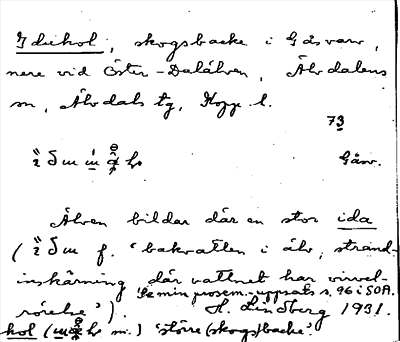 Idukol, skogsbacke i Gåsvarv,
nere vid Öster-Dalälven, Älvdalens
sn, Älvdals tg, Kopp. l.
73
Gåsv.
Älven bildar där en stor ida
f. 'bakvatten i älv, strand-
inskärning där vattnet har virvel-
rörelse').
Se min prosem.-uppsats s. 96 i SOA.
H. Lindberg 1931.
kol m.) 'större (skogs)backe'.